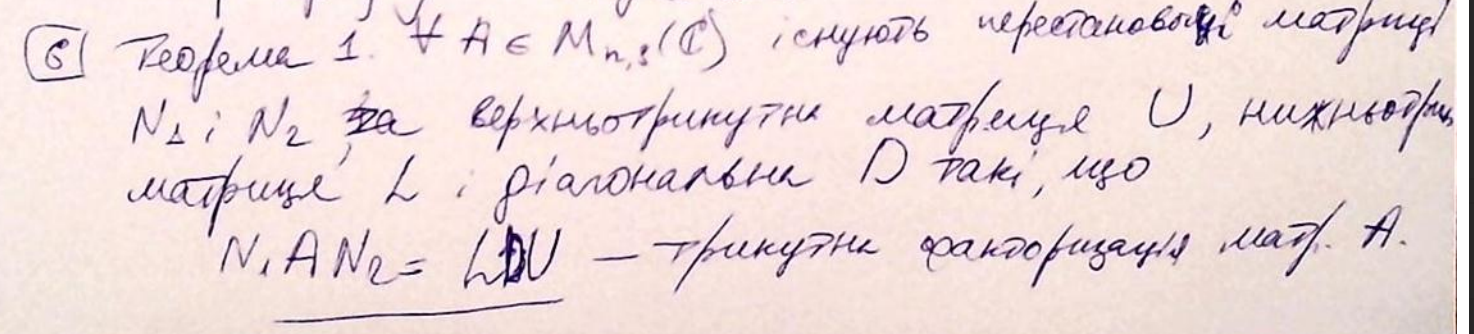 6 Теорема 1. ∀ A ∈ M_{n,s}(ℂ) існують перестановочні матриці
N₁ і N₂, та верхньотрикутна матриця U, нижньотрик
матриця L і діагональна D такі, що
N₁AN₂ = LDU — трикутна факторизація матр. A.